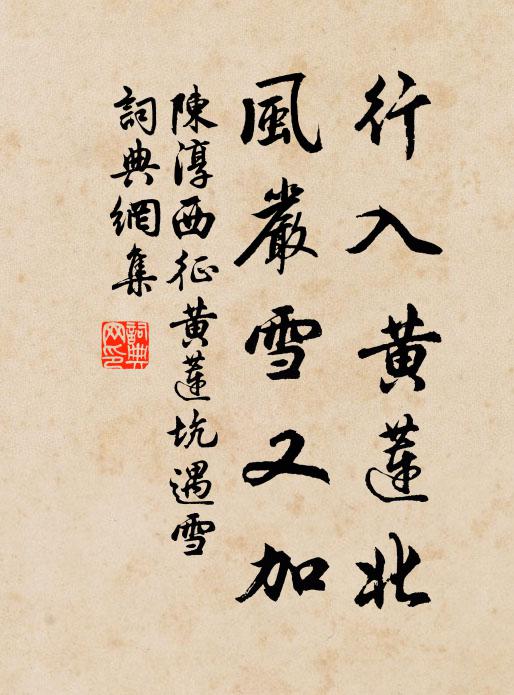 行入黄蓮北
風嚴雪又加
陳淳西征黄蓮坑遇雪
詞典網集
詞典網印